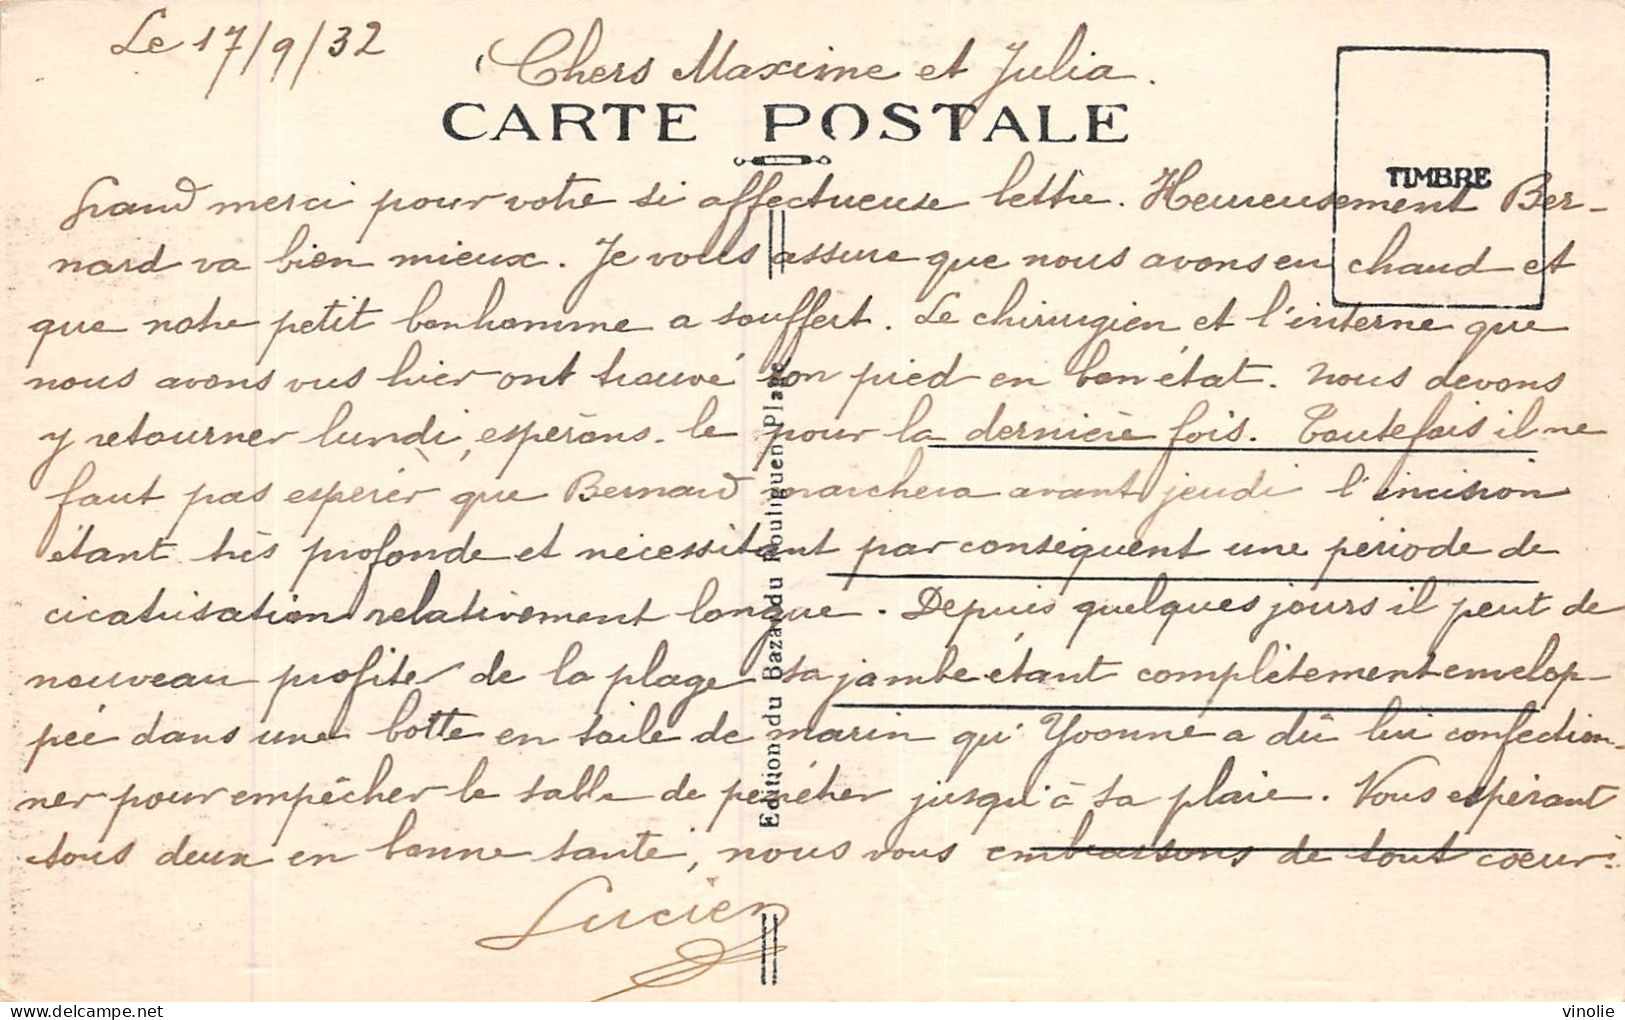 Le 17/9/32
Chers Maxime et Julia.
CARTE POSTALE
TIMBRE
Grand merci pour votre si affectueuse lettre. Heureusement Ber-
nard va bien mieux. Je vous assure que nous avons eu chaud et
que notre petit bonhomme a souffert. Le chirurgien et l'interne que
nous avons vus hier ont trouvé son pied en bon état. Nous devons
y retourner lundi, espérons-le pour la dernière fois. Toutefois il ne
faut pas espérer que Bernard marchera avant jeudi l'incision
étant très profonde et nécessitant par conséquent une période de
cicatrisation relativement longue. Depuis quelques jours il peut de
nouveau profiter de la plage sa jambe étant complètement envelop-
pée dans une botte en toile de marin qu'Yvonne a dû lui confection-
ner pour empêcher le sable de pénétrer jusqu'à sa plaie. Vous espérant
tous deux en bonne santé, nous vous embrassons de tout coeur.
Lucien
Edition du Bazar du Pouliguen-Plage
vinolie